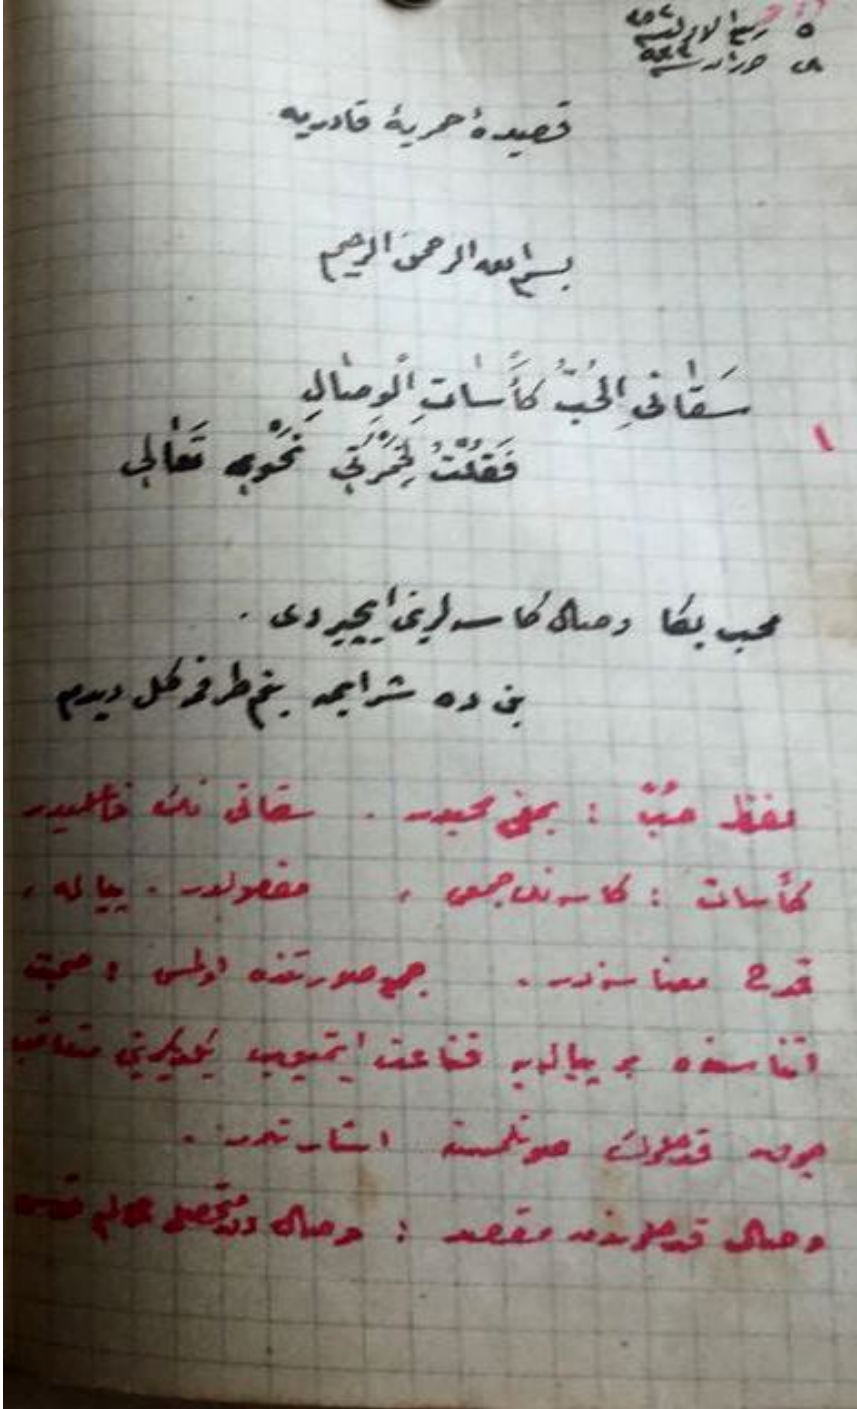 ٥ ربيع الاول
حزيران
قصيدۀ خمريۀ قادريه
بسم الله الرحمن الرحيم
سَقَانِى الْحُبُّ كَأْسَاتِ الْوِصَالِ
١
فَقُلْتُ لِخَمْرَتِي نَحْوِي تَعَالِي
محب بكا وصال كاسه لرينى ايچيردى .
بن ده شرابمه بنم طرفمه كل ديدم
لفظ حُبّ : بمعنى محبدر . سقانى نك فاعليدر
كأسات : كاسه نك جمعى ، مفعولدر . پياله ،
قدح معناسنه در . جمع صورتنده اولمسى ؛ صحبت
اثناسنده بر پياله يه قناعت ايتميوب يكديكرينى متعاقب
چوق قدحلرك صونلمسنه اشارتدر .
وصال قدحلرندن مقصد : وصال